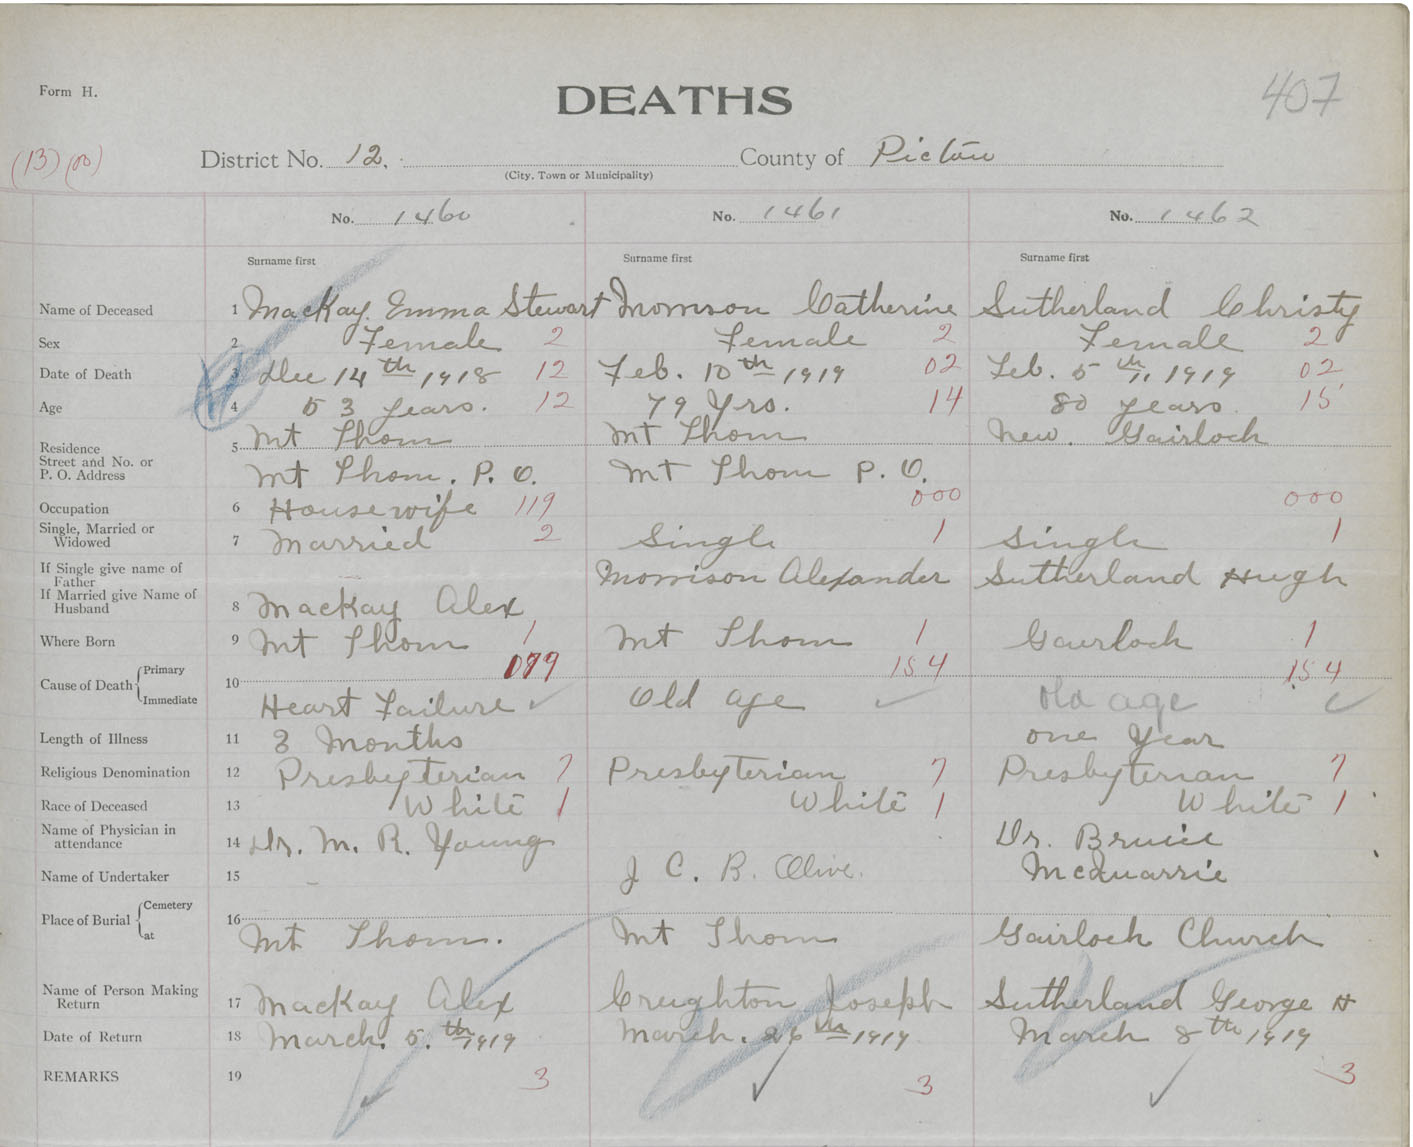 Form H.
DEATHS
407
(13) (00)
District No. 12. County of Pictou
(City, Town or Municipality)
No. 1460 No. 1461 No. 1462
Surname first Surname first Surname first
Name of Deceased 1 MacKay. Emma Stewart Morrison Catherine Sutherland Christy
Sex 2 Female 2 Female 2 Female 2
Date of Death 3 Dec 14th 1918 12 Feb. 10th 1919 02 Feb. 5th, 1919 02
Age 4 53 years. 12 79 Yrs. 14 80 years 15
Residence 5 Mt Thom Mt Thom New. Gairloch
Street and No. or
P. O. Address Mt Thom. P. O. Mt Thom P. O.
Occupation 6 Housewife 119 000 000
Single, Married or
Widowed 7 Married 2 Single 1 Single 1
If Single give name of
Father Morrison Alexander Sutherland Hugh
If Married give Name of
Husband 8 MacKay Alex
Where Born 9 Mt Thom 1 Mt Thom 1 Gairloch 1
Cause of Death Primary 10 079 154 154
Immediate Heart Failure ✓ Old age ✓ Old age ✓
Length of Illness 11 3 Months one Year
Religious Denomination 12 Presbyterian 7 Presbyterian 7 Presbyterian 7
Race of Deceased 13 White 1 White 1 White 1
Name of Physician in
attendance 14 Dr. M. R. Young Dr. Bruice
Name of Undertaker 15 J C. B. Olive. McQuarrie
Place of Burial Cemetery 16
at Mt Thom. Mt Thom Gairloch Church
Name of Person Making
Return 17 MacKay Alex Creighton Joseph Sutherland George H
Date of Return 18 March. 5.th 1919 March. 26th 1919 March 8th 1919
REMARKS 19 3 3 3